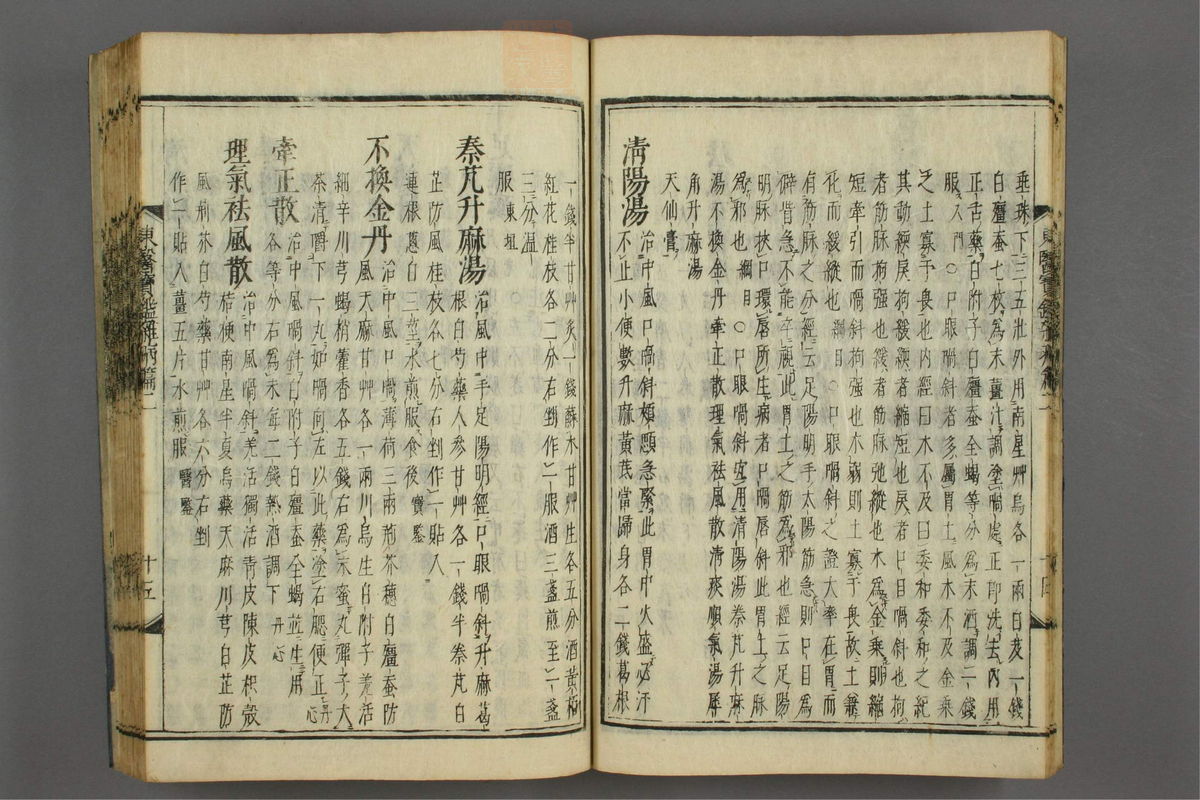 垂珠下三五泄外用南星艸烏各一兩白芨一錢
白殭蚕七枚爲末薑汁調塗喎處正卽洗去內用
正舌藥白附子白殭蚕全蝎等分爲末酒調二錢
服入門○口眼喎斜者多屬胃土風木不及金乘
之土寡于畏也內經曰木不及曰委和委和之紀
其動緛戾拘緩緛者縮短也戾者口目喎斜也拘
者筋脉拘强也緩者筋脉弛縱也木爲金乘則縮
短牽引而喎斜拘强也木弱則土寡于畏故土兼
化而緩縱也綱目○口眼喎斜之證大率在胃而
有筋脉之分經云足陽明手太陽筋急則口目爲
僻眥急不能卒視此胃土之筋爲邪也經云足陽
明脉挾口環唇所生病者口喎唇斜此胃土之脉
爲邪也綱目○口眼喎斜宜用清陽湯秦芃升麻
湯不換金丹牽正散理氣袪風散清痰順氣湯犀
角升麻湯
天仙膏
清陽湯
治中風口喎斜頰顋急緊此胃中火盛必汗
不止小便數升麻黃芪當歸身各二錢葛根
東醫寶鑑雜病篇二
十五
一錢半甘艸炙一錢蘇木甘艸生各五分酒黃栢
紅花桂枝各二分右剉作一服酒三盞煎至一盞
三分溫
服東垣
秦芃升麻湯
治風中手足陽明經口眼喎斜升麻葛
根白芍藥人參甘艸各一錢半秦芃白
芷防風桂枝各七分右剉作一貼入
連根蔥白二莖水煎服食後寶鑑
不換金丹
治中風口喎薄荷三兩荊芥穗白殭蚕防
風天麻甘艸各一兩川烏生白附子羌活
細辛川芎蝎梢藿香各五錢右爲末蜜丸彈子大
茶清嚼下一丸如喎向左以此藥塗右腮便正丹心
牽正散
治中風喎斜白附子白殭蚕全蝎並生用
各等分右爲末每二錢熱酒調下丹心
理氣袪風散
治中風喎斜羌活獨活靑皮陳皮枳殼
桔梗南星半夏烏藥天麻川芎白芷防
風荊芥白芍藥甘艸各六分右剉
作一貼入薑五片水煎服醫鑑
東醫寶鑑雜病篇二
十五